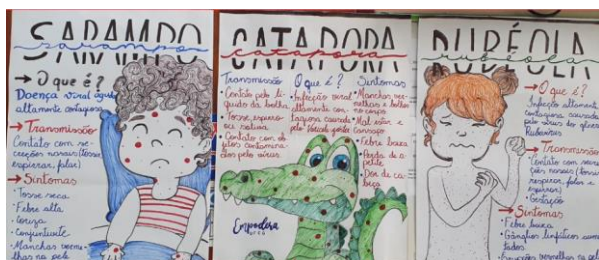 SARAMPO
sarampo
→ O que é?
Doença viral aguda
altamente contagiosa
→ Transmissão
Contato com se-
creções nasais (tosse
espirrar, falar)
→ Sintomas
• Tosse seca
• Febre alta
• Coriza
• Conjuntivite
• Manchas verme-
lhas na pele
CATAPORA
catapora
Transmissão
• Contato pelo li-
quido da bolha
• Tosse, espirro
ou saliva
• Contato com ob-
jetos contamina-
dos pelo vírus
O que é?
• Infecção viral
altamente con-
tagiosa causada
pelo
Sintomas
• Manchas ver-
melhas e bolhas
no corpo
• Mal estar e
cansaço
• Febre baixa
• Perda de a-
petite
• Dor de ca-
beça
RUBÉOLA
rubéola
→ O que é?
Infecção altamente
contagiosa, causada
pelo vírus do gênero
Rubivirus
→ Transmissão
Contato com secre-
ções nasais (tossir
respirar, falar e
espirrar)
• Gestação
→ Sintomas
• Febre baixa
• Gânglios linfáticos aumen-
tados
vermelhas na pele